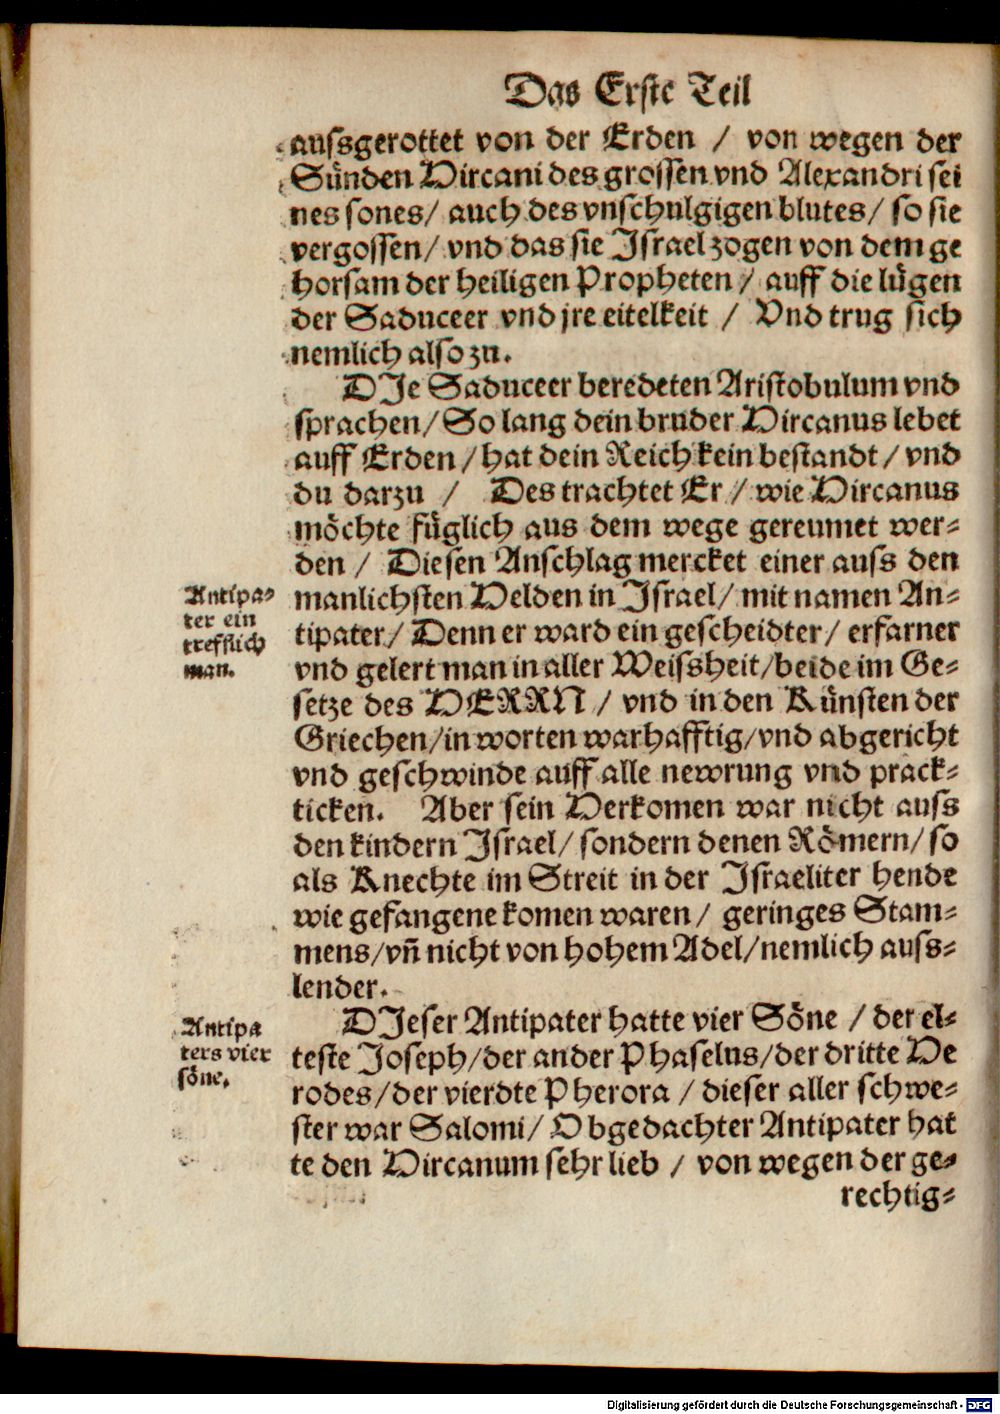 Das Erste Teil
aussgerottet von der Erden / von wegen der
Sünden Hircani des grossen vnd Alexandri sei
nes sones / auch des vnschulgigen blutes / so sie
vergossen / vnd das sie Israel zogen von dem ge
horsam der heiligen Propheten / auff die lügen
der Saduceer vnd jre eitelkeit / Vnd trug sich
nemlich also zu.
DJe Saduceer beredeten Aristobulum vnd
sprachen / So lang dein bruder Hircanus lebet
auff Erden / hat dein Reich kein bestandt / vnd
du darzu / Des trachtet Er / wie Hircanus
möchte füglich aus dem wege gereumet wer-
den / Diesen Anschlag mercket einer auss den
Antipa-
ter ein
trefflich
man.
manlichsten Helden in Israel / mit namen An-
tipater / Denn er ward ein gescheidter / erfarner
vnd gelert man in aller Weissheit / beide im Ge-
setze des HERRN / vnd in den Künsten der
Griechen / in worten warhafftig / vnd abgericht
vnd geschwinde auff alle newrung vnd prack-
ticken. Aber sein Herkomen war nicht auss
den kindern Israel / sondern denen Römern / so
als Knechte im Streit in der Israeliter hende
wie gefangene komen waren / geringes Stam-
mens / vñ nicht von hohem Adel / nemlich auss-
lender.
Antipa
ters vier
söne.
DJeser Antipater hatte vier Söne / der el-
teste Joseph / der ander Phaselus / der dritte He
rodes / der vierdte Pherora / dieser aller schwe-
ster war Salomi / Obgedachter Antipater hat
te den Hircanum sehr lieb / von wegen der ge-
rechtig-
Digitalisierung gefördert durch die Deutsche Forschungsgemeinschaft - DFG